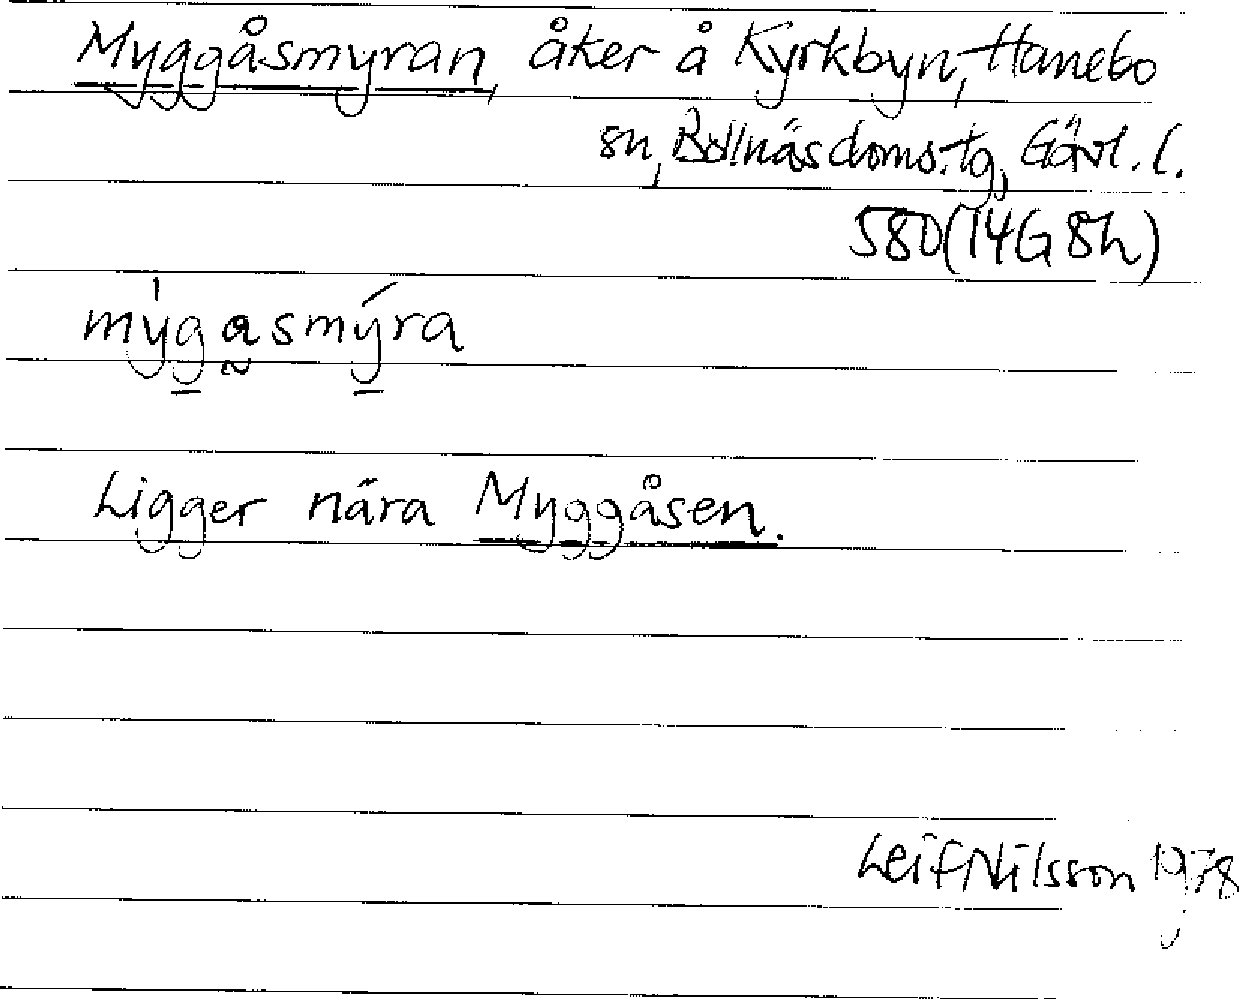 Myggåsmyran, åker å Kyrkbyn, Hanebo
sn, Bollnäs doms.tg, Gävl. l.
580 (14G 8h)
mýgasmýra
Ligger nära Myggåsen.
Leif Nilsson 1978